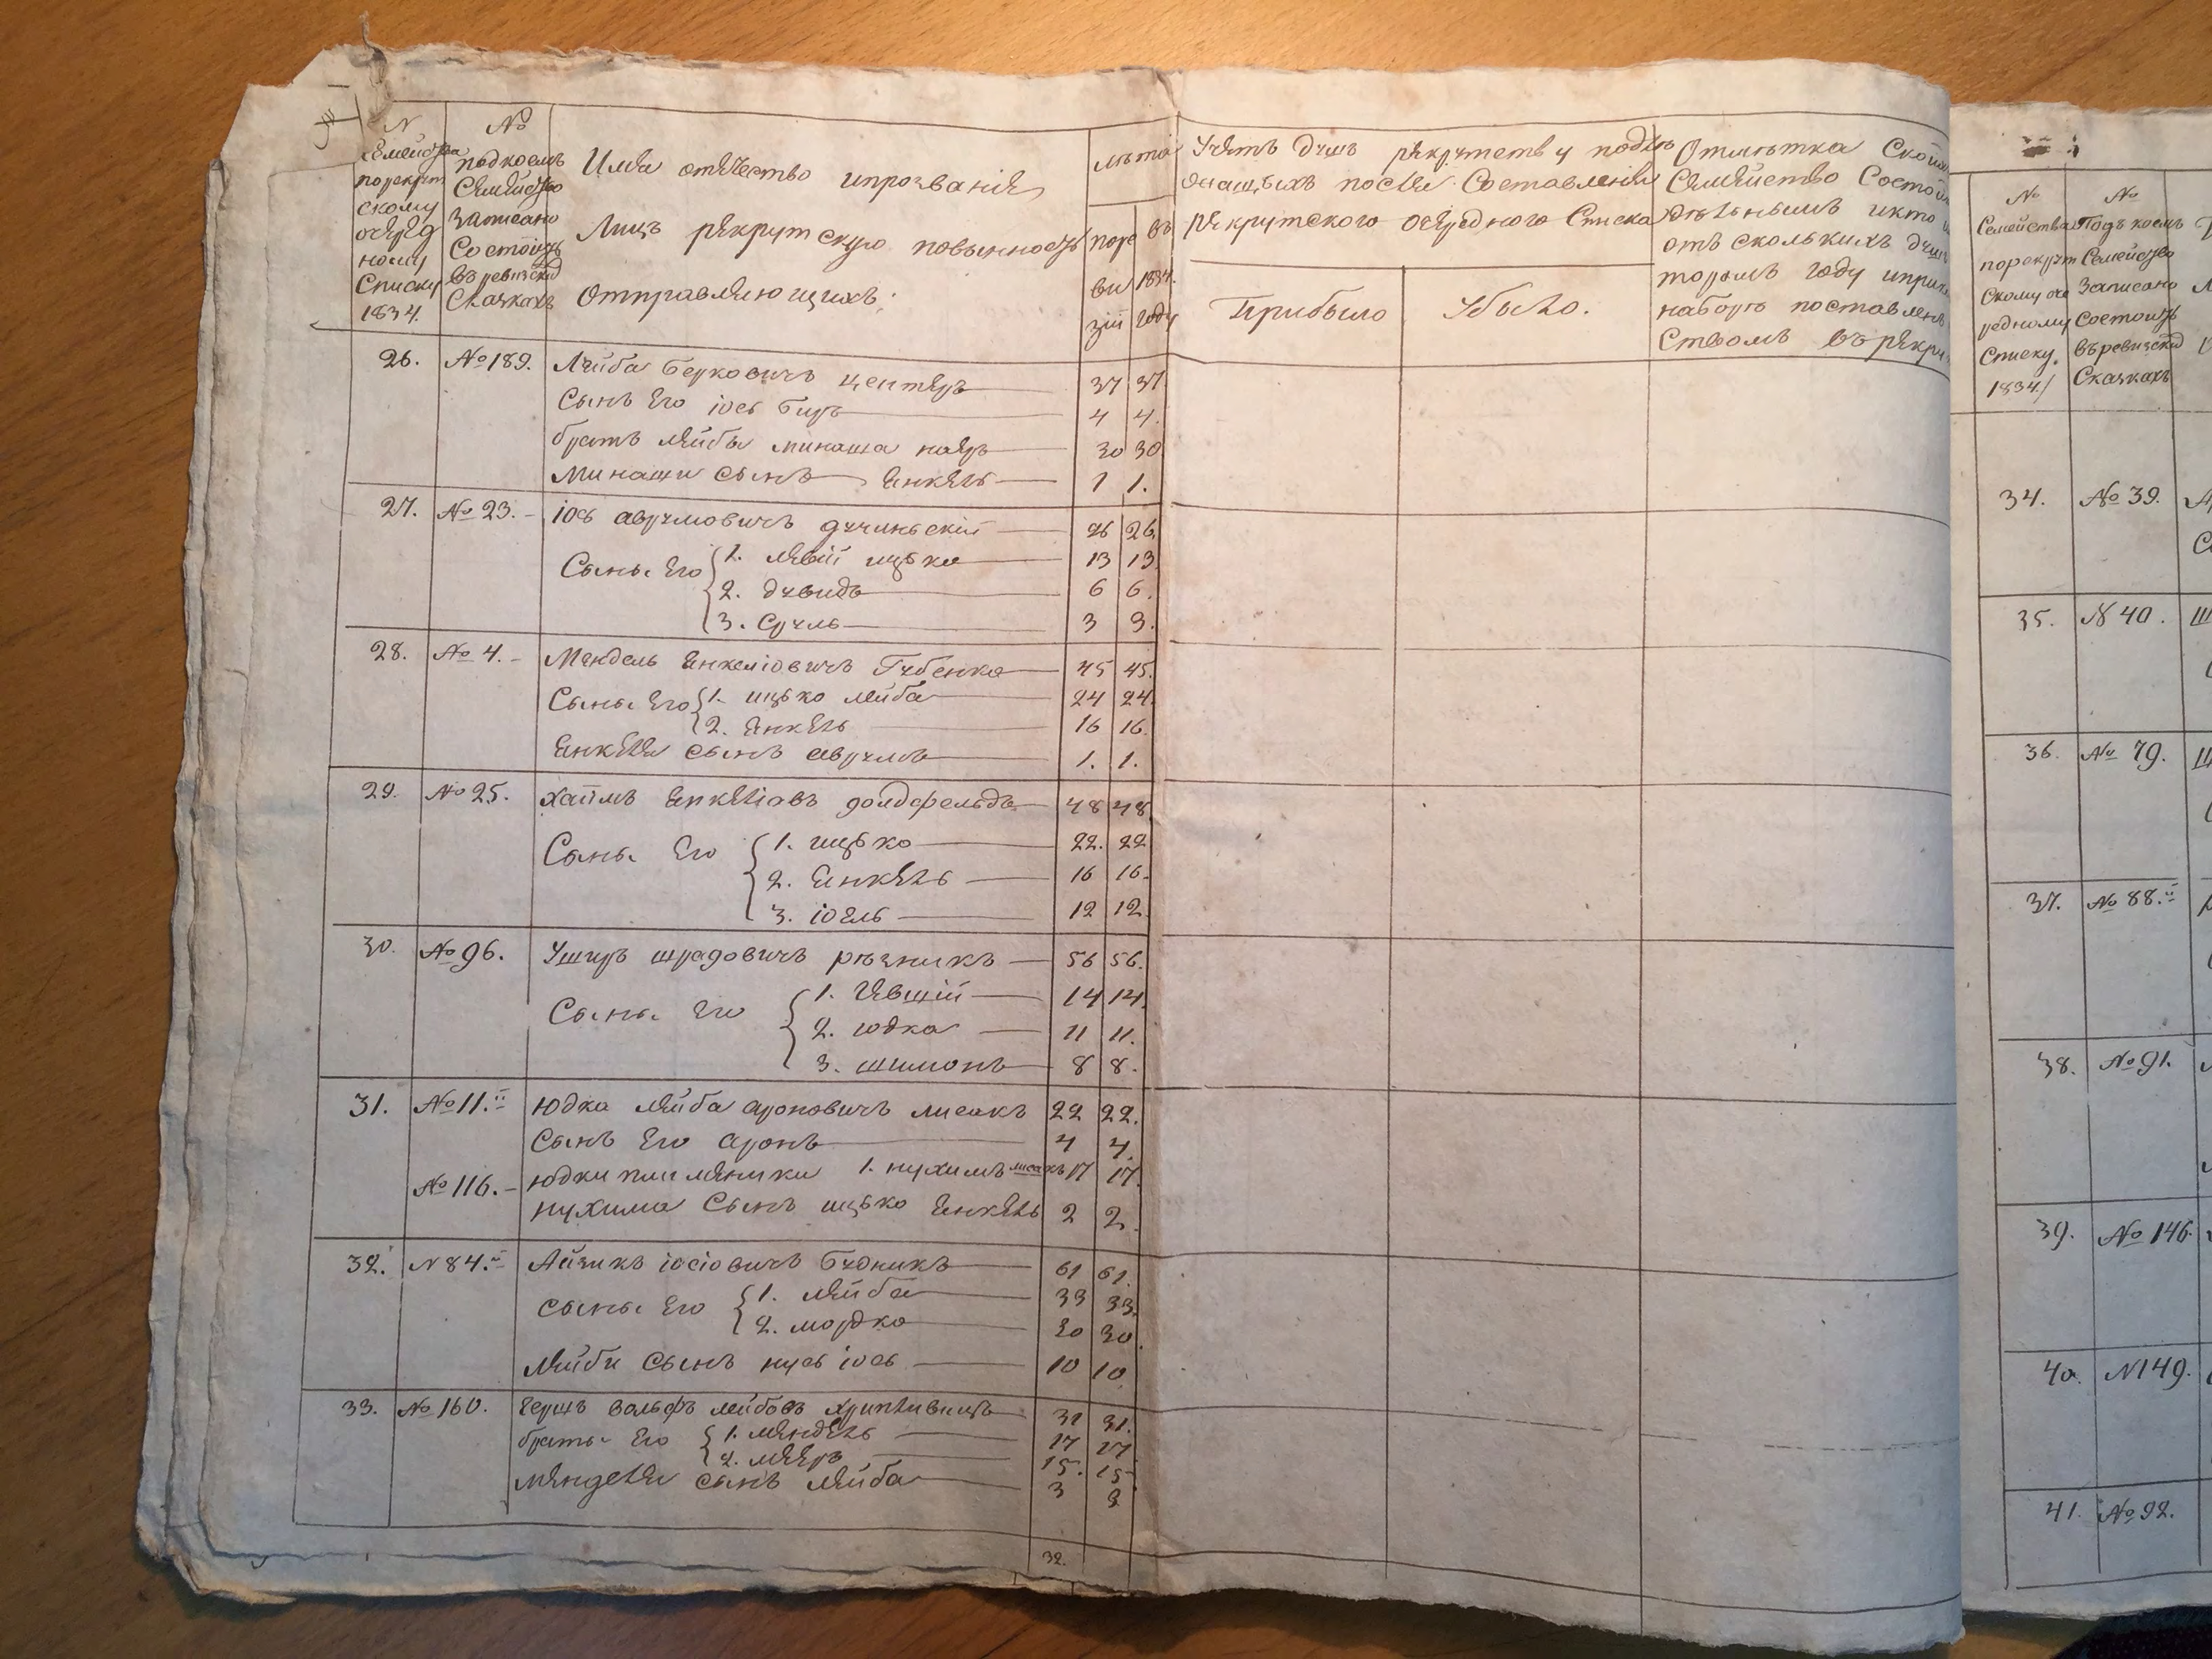 N
Семейства
по рекрут
скому
очеред
ному
Списку
1834.
№
под коемъ
Семейство
записано
Состоитъ
въ ревизскихъ
Сказкахъ
Имя отечество и прозваніе
Лицъ рекрутскую повинность
Отправляющихъ:
лѣта
поре
ви
зіи
въ
1834.
году
Учетъ душъ рекрутству подле
Рекрутского очередного Списка
Прибыло
Убыло.
Отмѣтка
Семейство
отъ сколькихъ
торомъ году
наборѣ поставлен
26. №189. Лейба Берковичъ центеръ 37 37.
Сынъ Его іось Биръ 4 4.
братъ лейбы минаша 30 30
Минаши сынъ Енкель 1 1.
27. №23. іось аврумовичъ дучинскій 26 26.
Сыны Его 1. ицько 13 13.
2. дувидъ 6 6.
3. Сруль 3 3.
28. №4. Мендель Енкеліовичъ Губенко 45 45.
Сыны Его 1. ицько лейба 24 24.
2. Енкель 16 16.
Енкеля сынъ аврумъ 1. 1.
29. №25. хаимъ Енкеліовъ голдфельдъ 48 48.
Сыны Его 1. ицько 22. 22
2. Енкель 16 16.
3. іоель 12 12.
30. №96. Ушеръ шрадовичъ рѣзникъ 56 56.
Сыны Его 1. Евшій 14 14.
2. юдка 11 11.
3. шимонъ 8 8.
31. №11. Юдка лейба ароновичъ лисакъ 22 22.
Сынъ Его аронъ 4 4.
№116. Юдки племяники 1. нухимъ лисакъ 17 17.
нухима Сынъ ицько Енкель 2 2.
32. N84. Айзикъ іосіовичъ Будникъ 61 61.
Сыны Его 1. лейба 33 33.
2. мордко 20 20.
Лейби Сынъ нусь іось 10 10.
33. №160. Гершъ вольфъ лейбовъ 31 31.
браты Его 1. мендель 17 17
2. мееръ 15. 15
менделя сынъ лейба 3 3
32.
№
Семейства
по рекрут
Скому оче
редному
Списку.
1834./
№
Подъ коемъ
Семейство
Записано
Состоитъ
въ ревизскихъ
Сказкахъ
34. №39.
35. N 40.
36. № 79.
37. № 88.
38. №91.
39. №146.
40. N149.
41. №92.